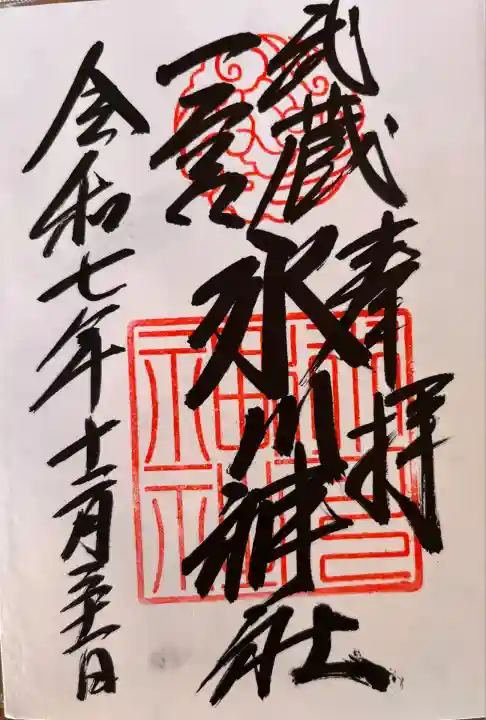 奉拝
武蔵
一宮
氷川神社
令和七年十二月三十一日